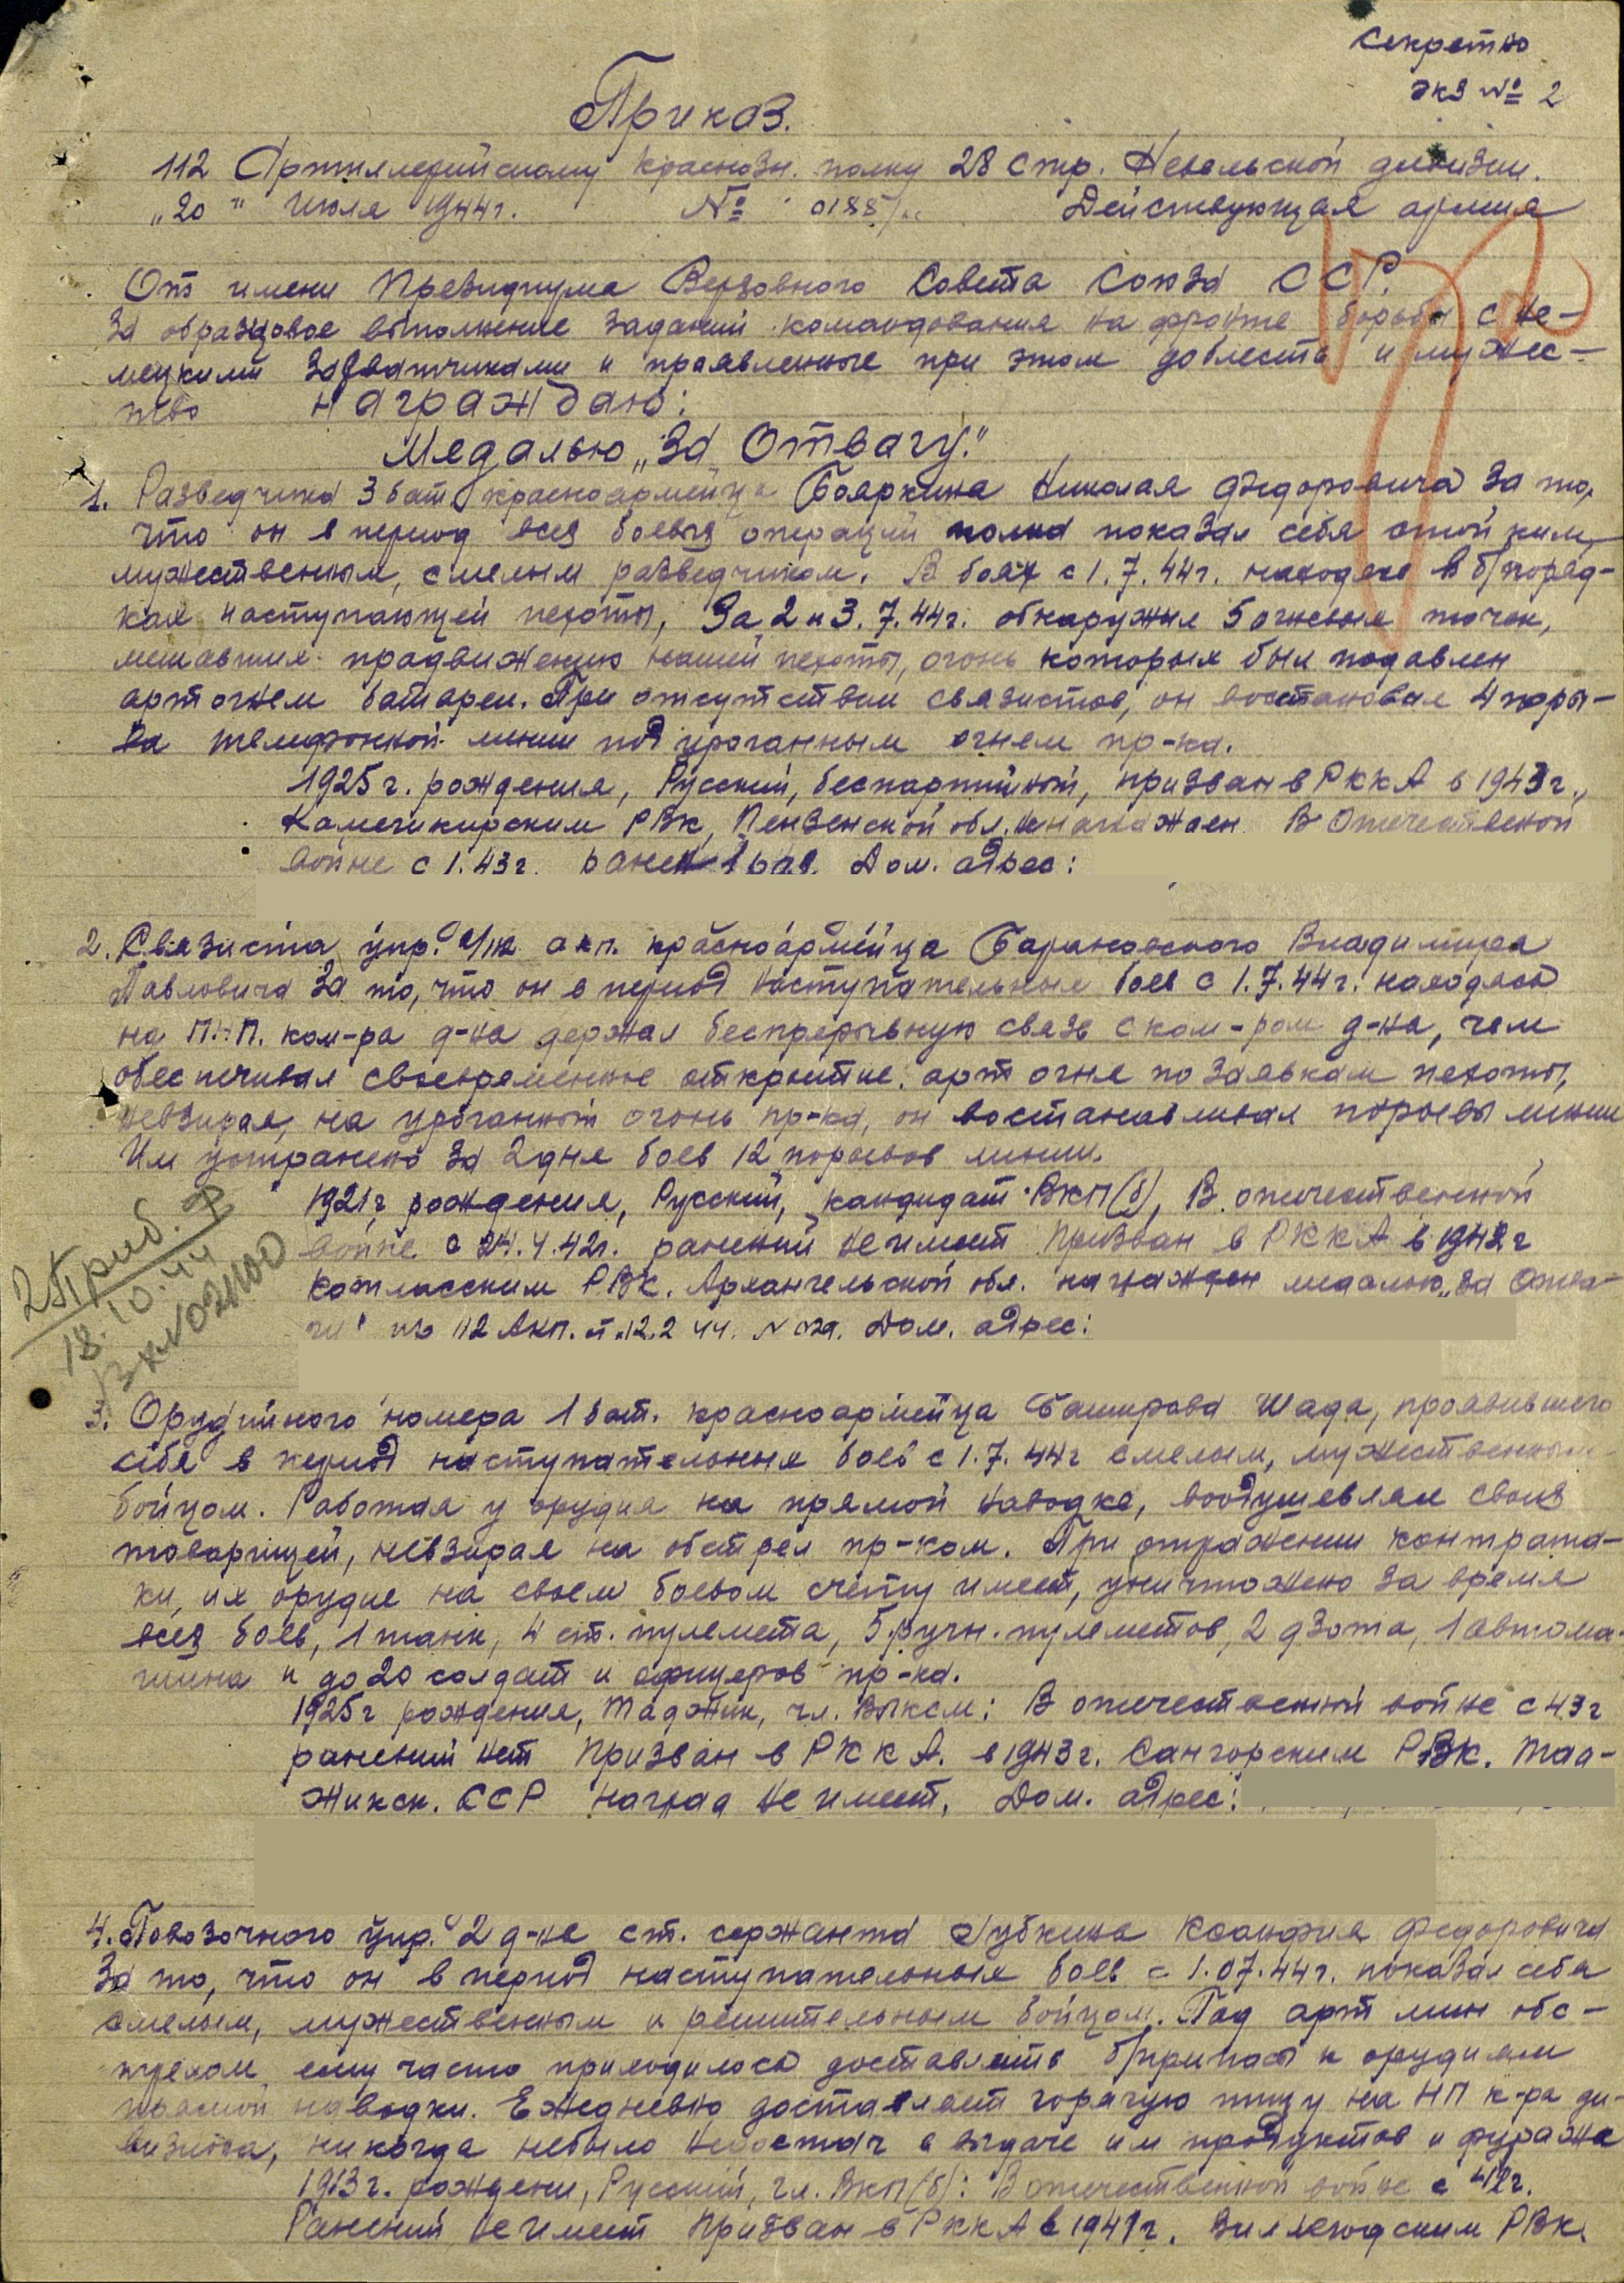 Секретно
экз № 2
Приказ.
112 Артиллерийскому краснозн. полку 28 стр. Невельской дивизии.
"20" Июля 1944г. № 0188/ Действующая армия
От имени Президиума Верховного Совета Союза ССР.
За образцовое выполнение заданий командования на фронте борьбы с не-
мецкими захватчиками и проявленные при этом доблесть и мужес-
тво награждаю:
Медалью „За Отвагу."
1. Разведчика 3 бат. красноармейца Бояркина Николая Федоровича За то,
что он в период всех боевых операций полка показал себя стойким,
мужественным, смелым разведчиком. В боях с 1.7.44г. находясь в б/поряд-
ках наступающей пехоты, За 2 и 3.7.44г. обнаружил 5 огневых точек,
мешавших продвижению нашей пехоты, огонь которых был подавлен
артогнем батареи. При отсутствии связистов, он востановил 4 поры-
ва телефонной линии под ураганным огнем пр-ка.
1925г. рождения, Русский, беспартийный, призван в РККА в 1943г.,
Камешкирским РВК, Пензенской обл. Ненагражден В Отечественной
войне с 1.43г. ранен 1 раз. Дом. адрес:
2. Связиста упр. 2/112 акп. красноармейца Барановского Владимира
Павловича За то, что он в период наступательных боев с 1.7.44г. находясь
на П.Н.П. ком-ра д-на держал беспрерывную связь с ком-ром д-на, чем
обеспечивал своевременное открытие арт огня по заявкам пехоты,
невзирая, на ураганный огонь пр-ка, он востанавливал порывы линии
Им устранено за 2 дня боев 12 порывов линии.
1921г. рождения, Русский, кандидат ВКП(б), В отечественной
войне с 24.4.42г. ранений не имеет Призван в РККА в 1942г
Котласским РВК. Архангельской обл. награжден медалью „За Отва-
гу" по 112 АКП. от 12.2 44. № 02а. Дом. адрес:
2 Приб. Ф
18.10.44
3. Орудийного номера 1 бат. красноармейца Баширова Шада, проявившего
себя в период наступательных боев с 1.7.44г смелым, мужественным
бойцом. Работая у орудия на прямой наводке, воодушевлял своих
товарищей, невзирая на обстрел пр-ком. При отражении контрата-
ки, их орудие на своем боевом счету имеет, уничтожено за время
всех боев, 1 танк, 4 ст. пулемета, 5 ручн. пулеметов, 2 дзота, 1 автома-
шина и до 20 солдат и офицеров пр-ка.
1925г рождения, Таджик, чл. ВЛКСМ: В отечественной войне с 43г
ранений нет Призван в РККА. в 1943г. Сангорским РВК. Тад-
жикск. ССР наград не имеет. Дом. адрес:
4. Повозочного упр. 2 д-на ст. сержанта Губкина Федоровича
За то, что он в период наступательных боев с 1.07.44г. показал себя
смелым, мужественным и решительным бойцом. Под арт мин обс-
трелом ему часто приходилось доставлять б/припасы к орудиям
прямой наводки. Ежедневно доставляет горячую пищу на НП к-ра ди-
визиона, никогда небыло недостач в выдаче им продуктов и фуража
1913г. рождени, Русский, чл. ВКП(б): В отечественной войне с 42г.
Ранений не имеет Призван в РККА в 1941г. Вилегодским РВК.